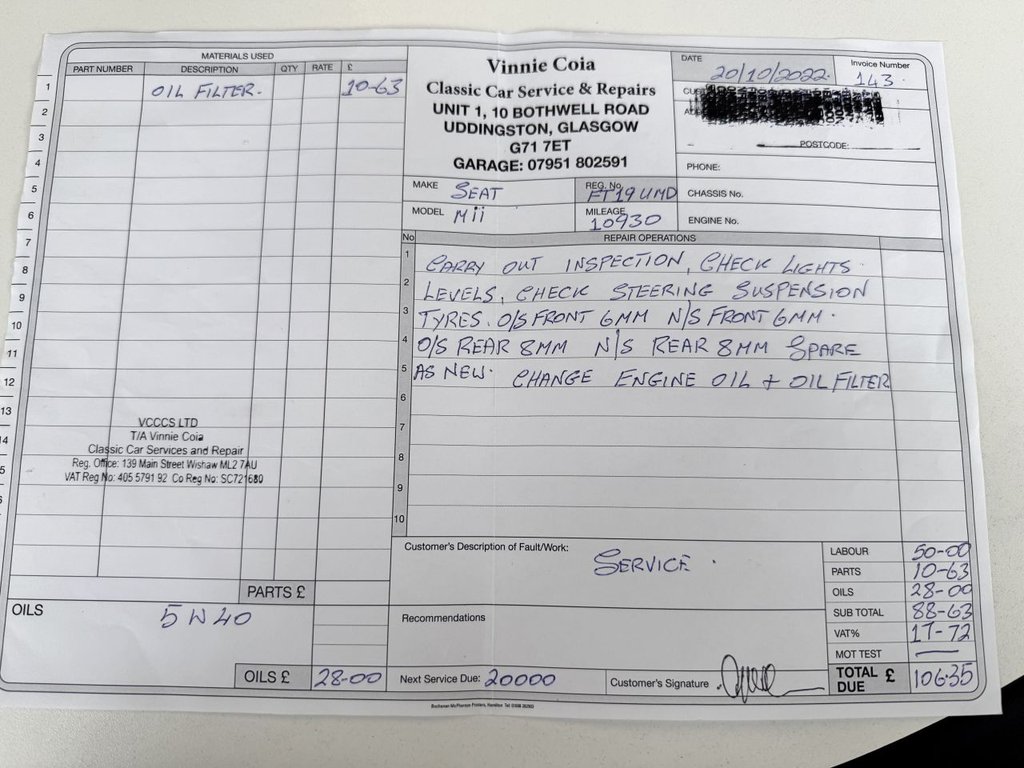 MATERIALS USED
PART NUMBER DESCRIPTION QTY RATE £
OIL FILTER. 10-63
1
2
3
4
5
6
7
8
9
10
11
12
13
VCCCS LTD
T/A Vinnie Coia
Classic Car Services and Repair
Reg. Office: 139 Main Street Wishaw ML2 7AU
VAT Reg No: 405 5791 92 Co Reg No: SC721680
PARTS £
OILS
5W40
OILS £ 28-00
Vinnie Coia
Classic Car Service & Repairs
UNIT 1, 10 BOTHWELL ROAD
UDDINGSTON, GLASGOW
G71 7ET
GARAGE: 07951 802591
DATE 20/10/2022
Invoice Number 143
POSTCODE:
PHONE:
CHASSIS No.
ENGINE No.
MAKE SEAT
REG. No. FT19UMD
MODEL Mii
MILEAGE 10930
No REPAIR OPERATIONS
1 CARRY OUT INSPECTION, CHECK LIGHTS
2 LEVELS, CHECK STEERING SUSPENSION
3 TYRES. O/S FRONT 6MM N/S FRONT 6MM.
4 O/S REAR 8MM N/S REAR 8MM SPARE
5 AS NEW. CHANGE ENGINE OIL + OIL FILTER
6
7
8
9
10
Customer's Description of Fault/Work: SERVICE.
Recommendations
Next Service Due: 20000
Customer's Signature
LABOUR 50-00
PARTS 10-63
OILS 28-00
SUB TOTAL 88-63
VAT% 17-72
MOT TEST —
TOTAL DUE £ 106.35